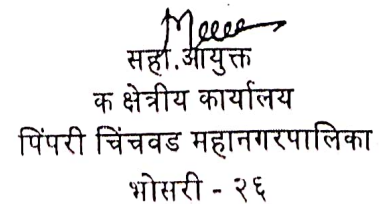 सहा.आयुक्त
क क्षेत्रीय कार्यालय
पिंपरी चिंचवड महानगरपालिका
भोसरी - २६